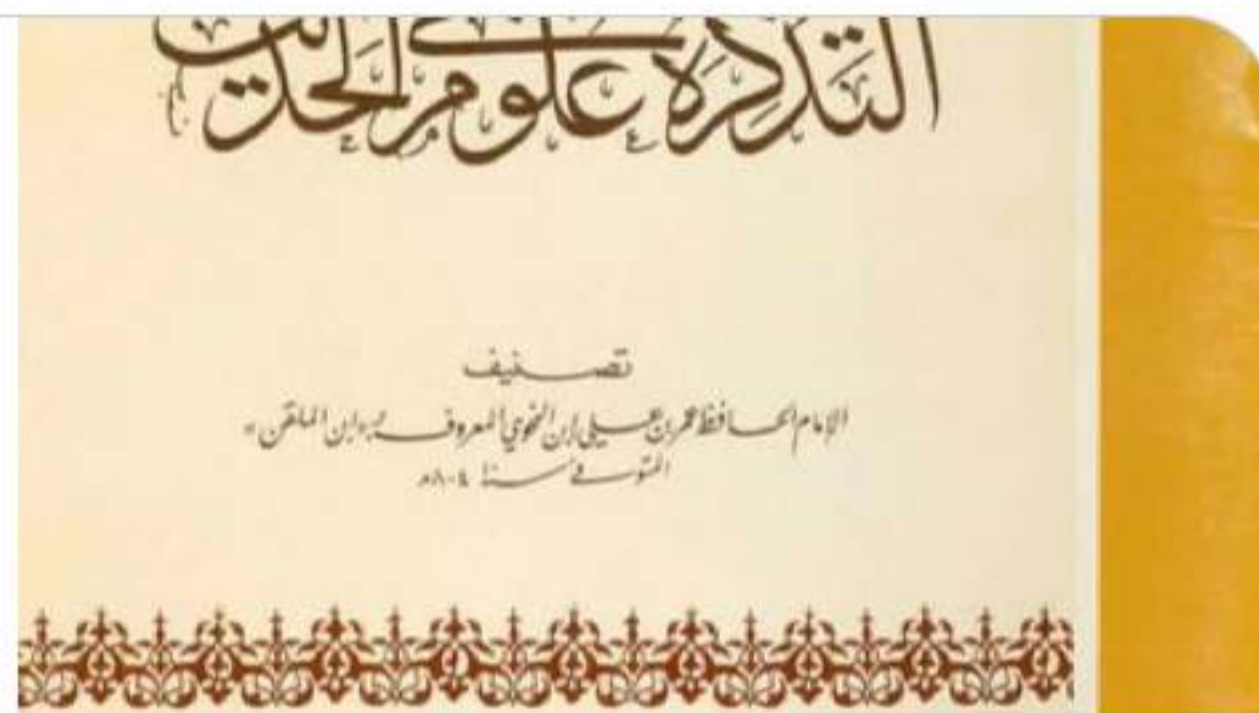 التذكرة في علوم الحديث
تصنيف
الإمام الحافظ عمر بن علي ابن النحوي المعروف بـ «ابن الملقن»
المتوفى سنة ٨٠٤هـ